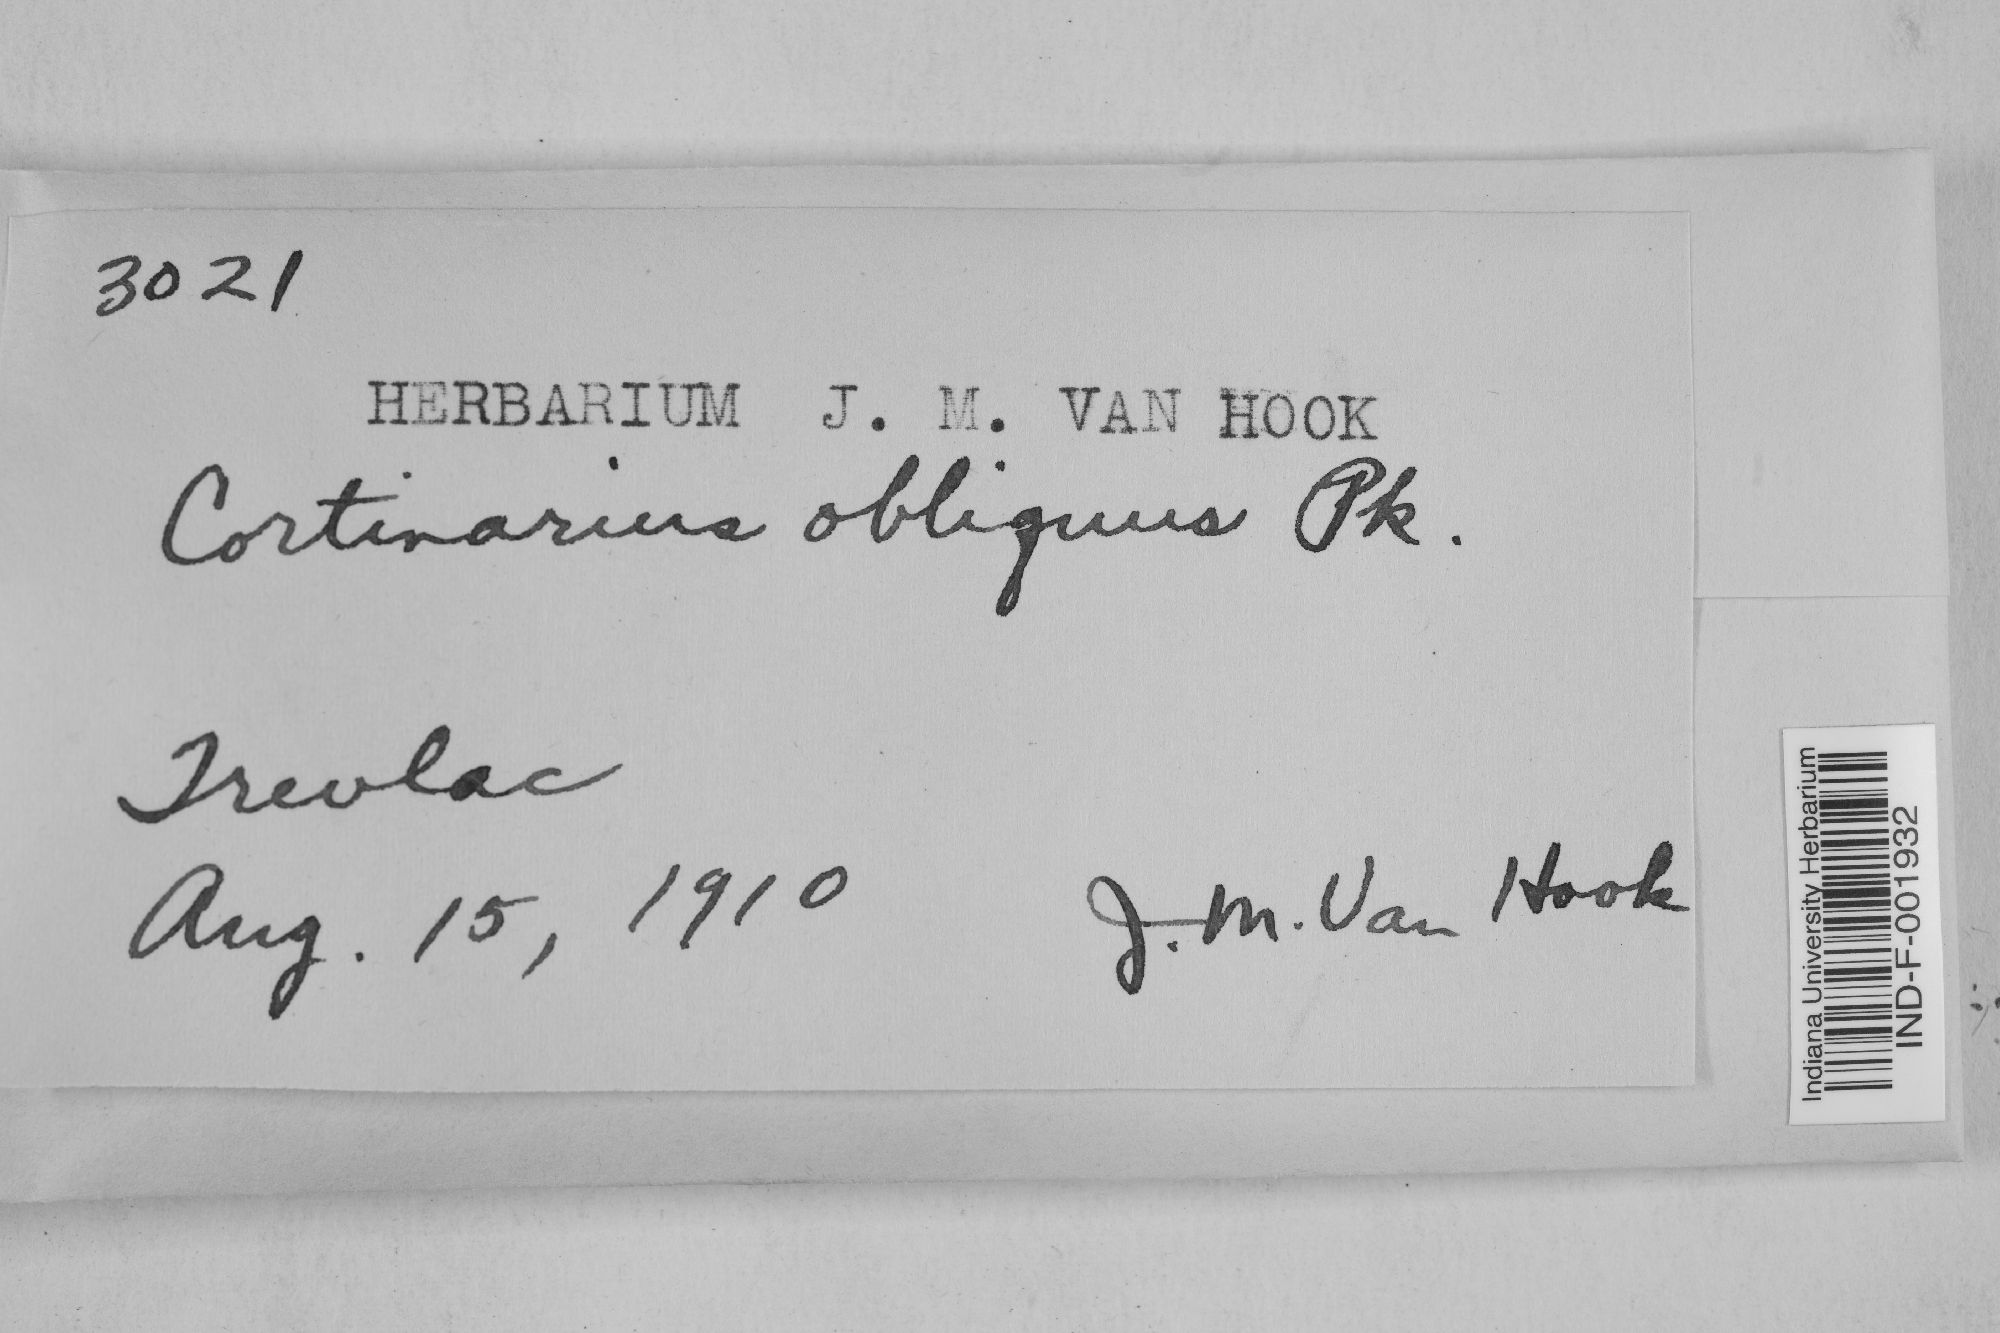 3021
HERBARIUM J. M. VAN HOOK
Cortinarius obliquus Pk.
Trevlac
Aug. 15, 1910
J. M. Van Hook
Indiana University Herbarium
IND-F-001932